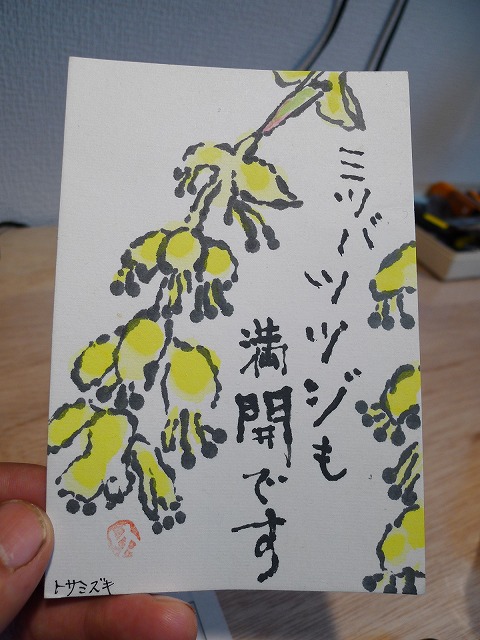 ミツバツツジも
満開です
トサミズキ